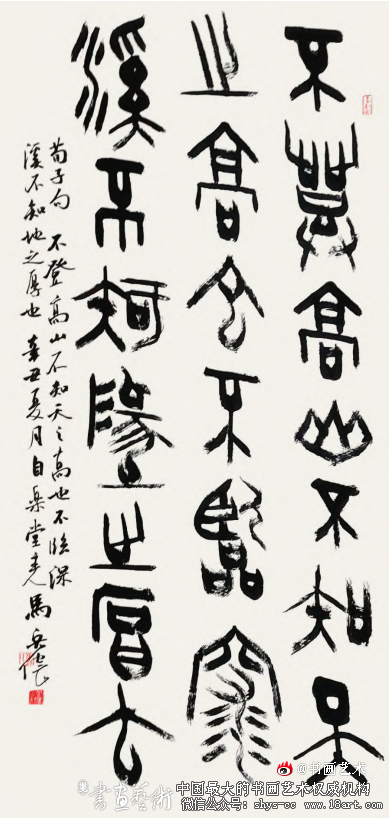 不登高山不知天
之高也不臨深
溪不知地之厚也
荀子句 不登高山不知天之高也不臨深
溪不知地之厚也 辛丑夏月自樂堂 馬
@书画艺术
書畫藝術
中国最大的书画艺术权威机构
微信公众号: shys-cc www.18art.com